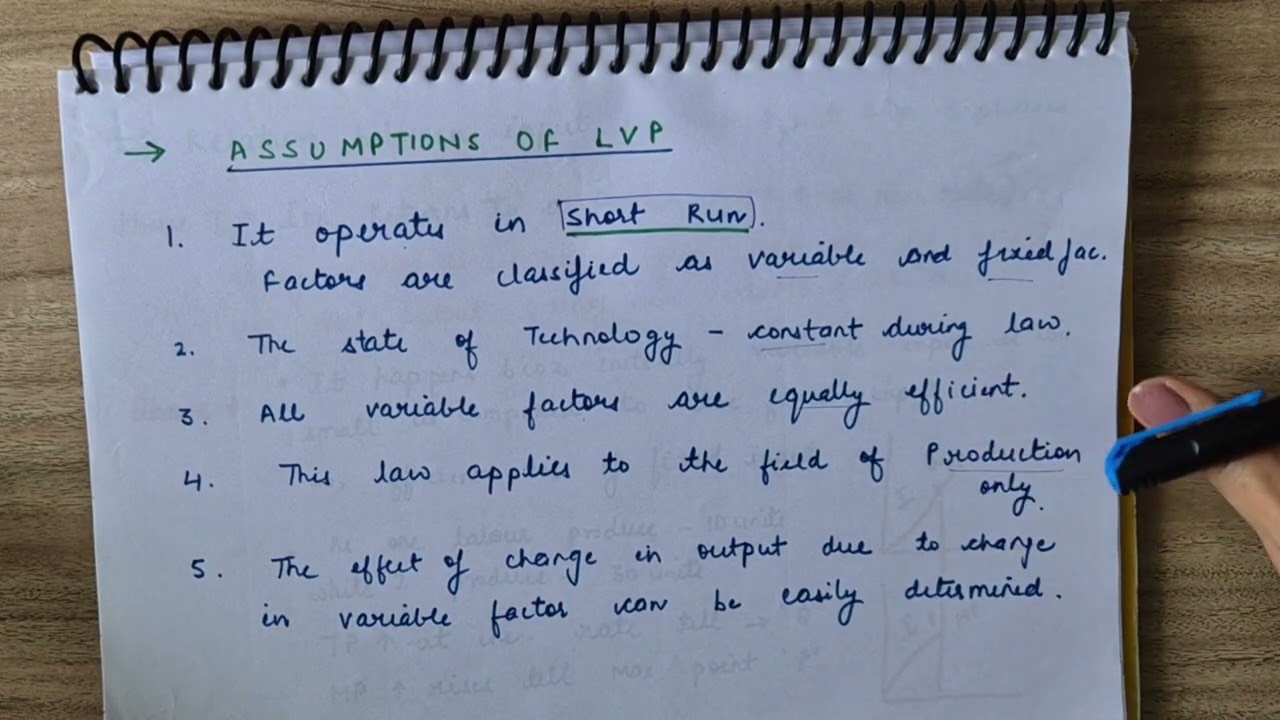 → ASSUMPTIONS OF LVP
1. It operates in Short Run.
Factors are classified as variable and fixed fac.
2. The state of Technology - constant during law.
3. All variable factors are equally efficient.
4. This law applies to the field of Production
only.
5. The effect of change in output due to change
in variable factor can be easily determined.